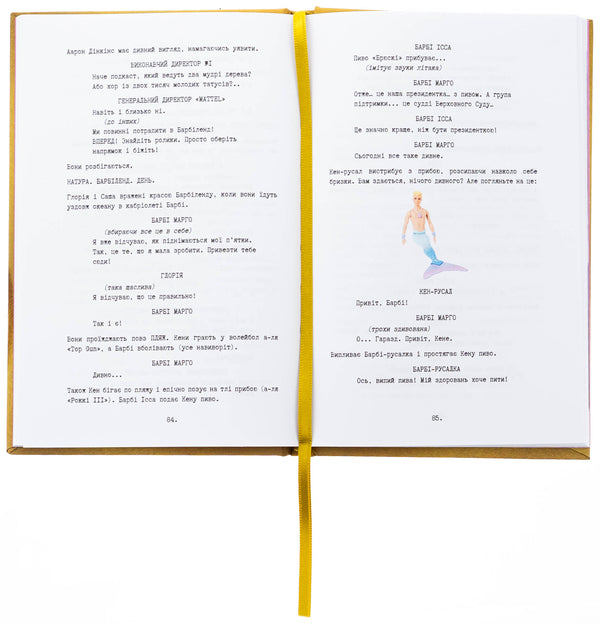 Аарон Дінкінс має дивний вигляд, намагаючись уявити.
ВИКОНАВЧИЙ ДИРЕКТОР №1
Наче подкаст, який ведуть два мудрі дерева?
Або хор із двох тисяч молодих татусів?..
ГЕНЕРАЛЬНИЙ ДИРЕКТОР «MATTEL»
Навіть і близько ні.
(до інших)
Ми повинні потрапити в Барбіленд!
ВПЕРЕД! Знайдіть ролики. Просто оберіть
напрямок і біжіть!
Вони розбігаються.
НАТУРА. БАРБІЛЕНД. ДЕНЬ.
Глорія і Саша вражені красою Барбіленду, коли вони їдуть
уздовж океану в кабріолеті Барбі.
БАРБІ МАРГО
(вбираючи все це в себе)
Я вже відчуваю, як піднімаються мої п'ятки.
Так, це те, що я мала зробити. Привезти тебе
сюди!
ГЛОРІЯ
(така щаслива)
Я відчуваю, що це правильно!
БАРБІ МАРГО
Так і є!
Вони проїжджають повз ПЛЯЖ. Кени грають у волейбол а-ля
«Top Gun», а Барбі вболівають (усе навиворіт).
БАРБІ МАРГО
Дивно...
Також Кен бігає по пляжу і епічно позує на тлі прибою (а-ля
«Роккі III»). Барбі Ісса подає Кену пиво.
84.
БАРБІ ІССА
Пиво «Брюскі» прибуває...
(імітує звуки літака)
БАРБІ МАРГО
Отже… це наша президентка… з пивом. А група
підтримки... це судді Верховного Суду…
БАРБІ ІССА
Це значно краще, ніж бути президенткою!
БАРБІ МАРГО
Сьогодні все таке дивне.
Кен-русал вистрибує з прибою, розсипаючи навколо себе
бризки. Вам здається, нічого дивного? Але погляньте на це:
КЕН-РУСАЛ
Привіт, Барбі!
БАРБІ МАРГО
(трохи здивована)
О... Гаразд. Привіт, Кене.
Випливає Барбі-русалка і простягає Кену пиво.
БАРБІ-РУСАЛКА
Ось, випий пива! Мій здоровань хоче пити!
85.